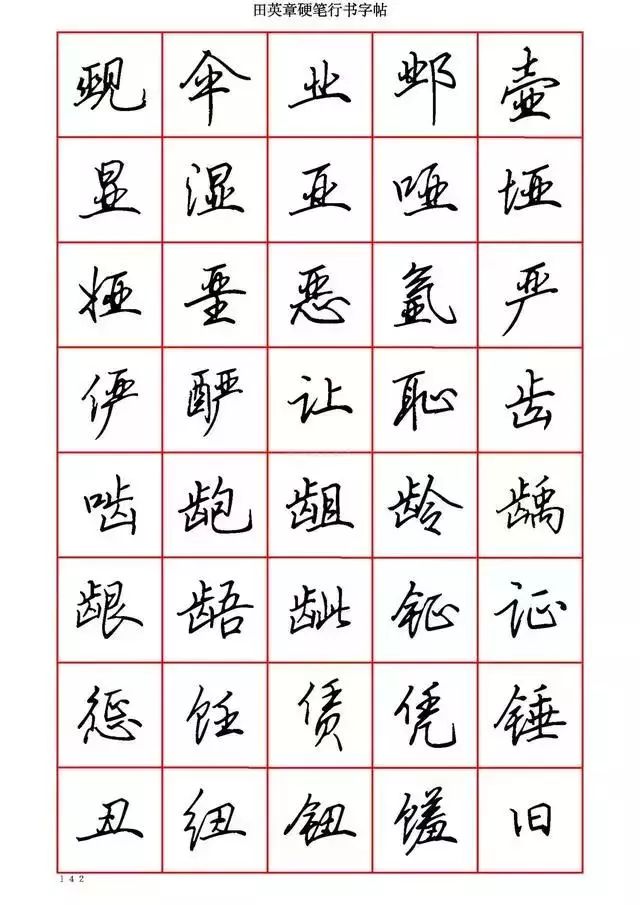 田英章硬笔行书字帖
觋伞业邺壶
显湿亚哑垭
娅垩恶氩严
俨酽让耻齿
啮龅龃龄龋
龈龉龇钲证
惩饪赁凭锤
丑纽钮馐旧
142